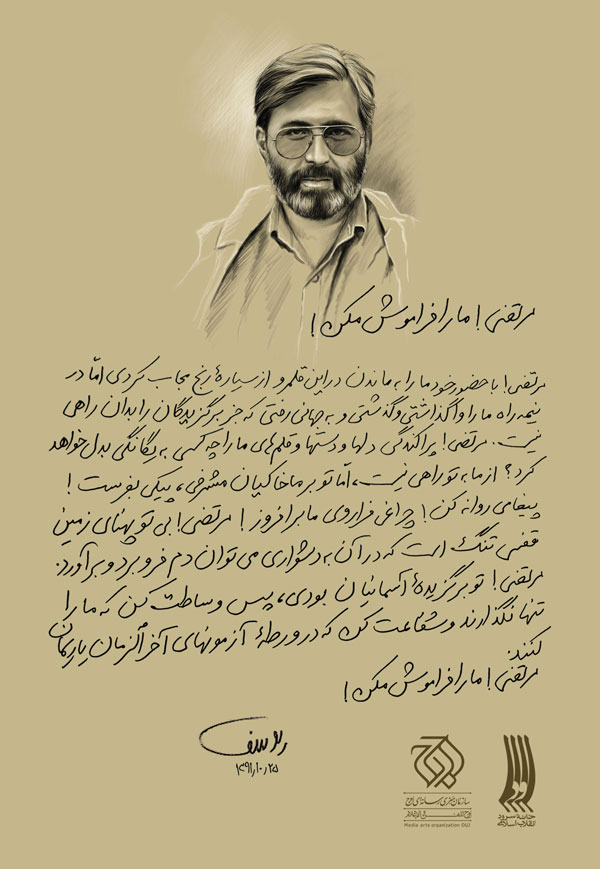 مرتضی! ما را فراموش مکن!
مرتضی! با حضور خود ما را به ماندن در این قلمرو از سیارهٔ رنج مجاب کردی امّا در
نیمه راه ما را واگذاشتی و گذشتی و به جهانی رفتی که جز برگزیدگان را بدان راهی
نیست. مرتضی! پراکندگی دلها و دستها و قلم‌های ما را چه کسی به یگانگی بدل خواهد
کرد؟ از ما به تو راهی نیست، امّا تو بر ما خاکیان مشرفی، پیکی بفرست!
پیغامی روانه کن! چراغی فراروی ما برافروز! مرتضی! بی تو پهنای زمین
قفسی تنگ است که در آن به دشواری می‌توان دم فرو برد و برآورد.
مرتضی! تو برگزیدهٔ آسمانیان بودی، پس وساطت کن که ما را
تنها نگذارند و شفاعت کن که در ورطهٔ آزمونهای آخرالزمان یاریمان
کنند.
مرتضی! ما را فراموش مکن!
یوسف
۱۳۹۱٫۱۰٫۲۵
سازمان هنری رسانه‌ای اوج
Media arts organization OUJ
خانه سرود
انقلاب اسلامی